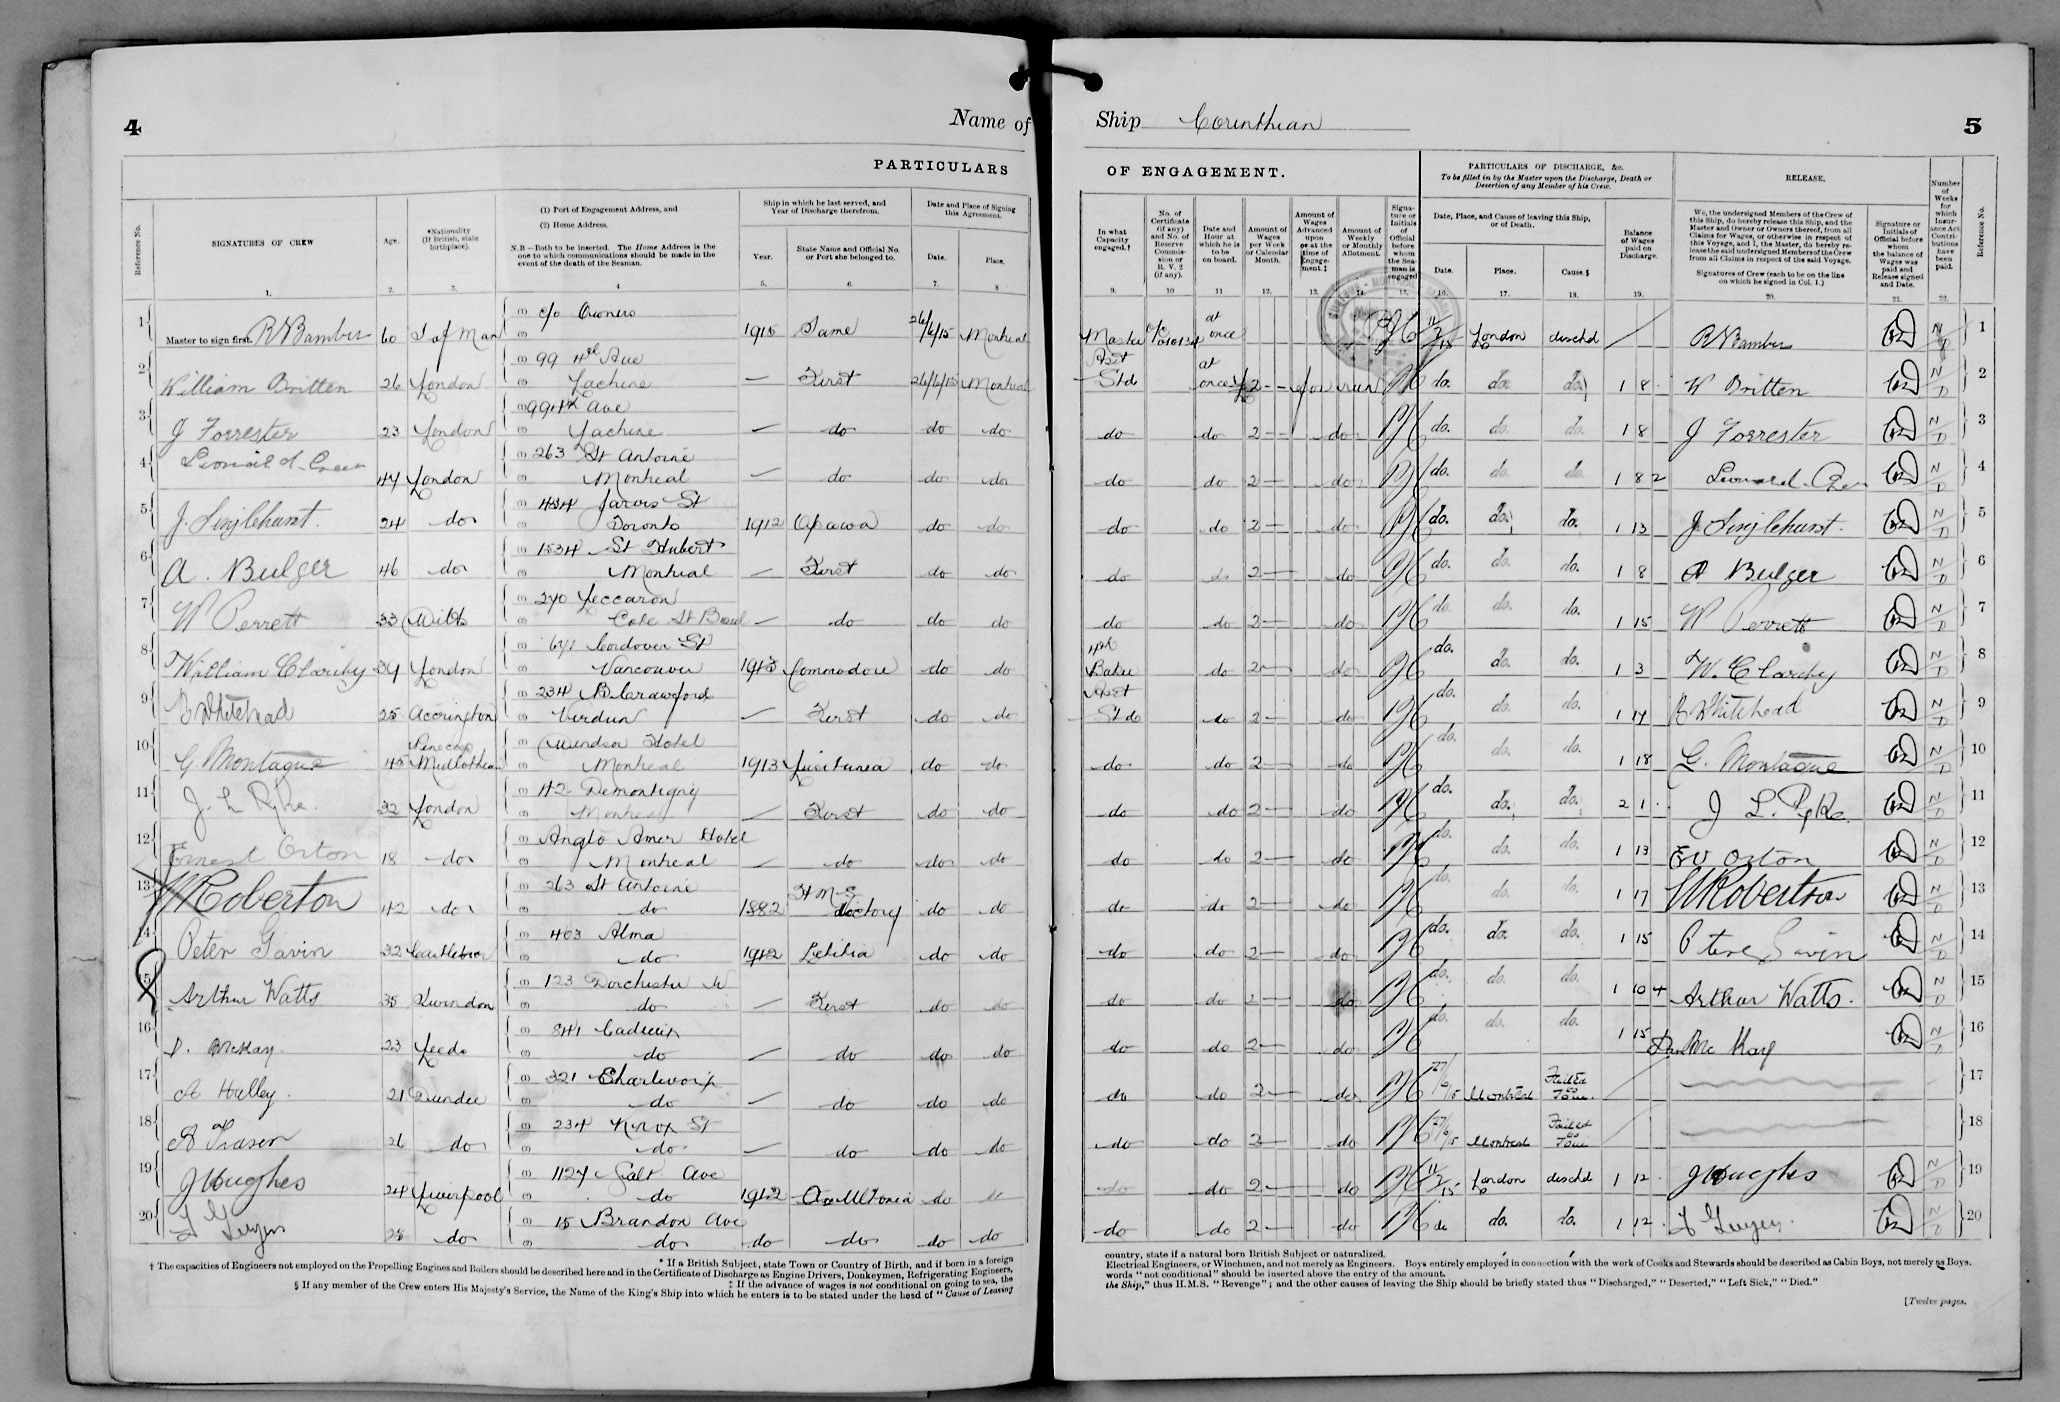 4
Name of
PARTICULARS
Reference No.
SIGNATURES OF CREW
Age.
*Nationality (If British, state birthplace).
(1) Port of Engagement Address, and
(2) Home Address.
N.B—Both to be inserted. The Home Address is the one to which communications should be made in the event of the death of the Seaman.
Ship in which he last served, and Year of Discharge therefrom.
Year.
State Name and Official No. or Port she belonged to.
Date and Place of Signing this Agreement.
Date.
Place.
1. 2. 3. 4 5. 6. 7. 8
1 Master to sign first. 60 I of Man (1) c/o Owners (2) 1915 Same 26/6/15 Montreal
2 William Britten 26 London (1) 99 4th Ave (2) Lachine — First 26/6/15 Montreal
3 J Forrester 23 London (1) 99 4th Ave (2) Lachine — do do do
4 44 London (1) 263 St Antoine (2) Montreal — do do do
5 J. Singlehurst. 24 do (1) 434 Jarvis St (2) Toronto 1912 do do
6 A. Bulger 46 do (1) 1534 St Hubert (2) Montreal — First do do
7 W Perrett 33 Wilts (1) 240 (2) Cote St — do do do
8 William 34 London (1) Cordova St (2) Vancouver 1913 Commodore do do
9 Whitehead 25 Accrington (1) 234 Crawford (2) Verdun — First do do
10 G. Montague 45 Midlothian (1) Windsor Hotel (2) Montreal 1913 Lusitania do do
11 J. L Pyke. 32 London (1) 42 Demontigny (2) Montreal — First do do
12 Ernest Orton 18 do (1) Anglo Amer Hotel (2) Montreal — do do do
13 W Roberton 42 do (1) 263 St Antoine (2) do 1882 H M S Victory do do
14 Peter Gavin 32 Castlebar (1) 403 Alma (2) do 1912 Letitia do do
15 Arthur Watts 35 Swindon (1) 123 Dorchester W (2) do — First do do
16 D. McKay. 23 Leeds (1) 841 Cadieux (2) do — do do do
17 A Halley. 21 Dundee (1) 321 Charlevoix (2) do — do do do
18 A Fraser 26 do (1) 234 Knox St (2) do — do do do
19 J Hughes 24 Liverpool (1) 1124 Galt Ave (2) do 1912 do
20 25 do (1) 15 Brandon Ave (2) do do do do do
* If a British Subject, state Town or Country of Birth, and if born in a foreign
† The capacities of Engineers not employed on the Propelling Engines and Boilers should be described here and in the Certificate of Discharge as Engine Drivers, Donkeymen, Refrigerating Engineers,
‡ If the advance of wages is not conditional on going to sea, the
§ If any member of the Crew enters His Majesty's Service, the Name of the King's Ship into which he enters is to be stated under the head of "Cause of Leaving
Ship Corinthian
5
OF ENGAGEMENT.
PARTICULARS OF DISCHARGE, &c.
To be filled in by the Master upon the Discharge, Death or Desertion of any Member of his Crew.
RELEASE.
In what Capacity engaged.†
No. of Certificate (if any) and No. of Reserve Commission or R. V. 2 (if any).
Date and Hour at which he is to be on board.
Amount of Wages per Week or Calendar Month.
Amount of Wages Advanced upon or at the time of Engagement.‡
Amount of Weekly or Monthly Allotment.
Signature or Initials of Official before whom the Seaman is engaged
Date, Place, and Cause of leaving this Ship, or of Death.
Date.
Place.
Cause.§
Balance of Wages paid on Discharge.
We, the undersigned Members of the Crew of this Ship, do hereby release this Ship, and the Master and Owner or Owners thereof, from all Claims for Wages, or otherwise in respect of this Voyage, and I, the Master, do hereby release the said undersigned Members of the Crew from all Claims in respect of the said Voyage.
Signatures of Crew (each to be on the line on which he signed in Col. 1.)
Signature or Initials of Official before whom the balance of Wages was paid and Release signed and Date.
Number of Weeks for which Insurance Act Contributions have been paid.
Reference No.
9. 10 11 12. 13. 14. 15. 16. 17. 18. 19. 20. 21. 22.
Master at once 11/7/15 London dischd N/D 1
Asst Std at once £2 — for run do. do. do. 1 8 W Britten N/D 2
do do 2 — do do. do. do. 1 8 J Forrester N/D 3
do do 2 — do do. do. do. 1 8 2 N/D 4
do do 2 — do do. do. do. 1 13 J Singlehurst. N/D 5
do do 2 — do do. do. do. 1 8 A Bulger N/D 6
do do 2 — do do. do. do. 1 15 W Perrett N/D 7
Baker do 2 — do do. do. do. 1 3 N/D 8
Asst Std do 2 — do do. do. do. 1 14 Whitehead N/D 9
do do 2 — do do. do. do. 1 18 G. Montague N/D 10
do do 2 — do do. do. do. 2 1 J L. Pyke. N/D 11
do do 2 — do do. do. do. 1 13 Orton N/D 12
do do 2 — do do. do. do. 1 17 W Roberton N/D 13
do do 2 — do do. do. do. 1 15 Peter Gavin N/D 14
do do 2 — do do. do. do. 1 10 4 Arthur Watts. N/D 15
do do 2 — do do. do. do. 1 15 Dan Mc Kay N/D 16
do do 2 — do 27/6/15 Montreal Failed to Join. 17
do do 2 — do 27/6/15 Montreal Failed to Join 18
do do 2 — do 11/7/15 London dischd 1 12 J Hughes N/D 19
do do 2 — do do do. do. 1 12 N/D 20
country, state if a natural born British Subject or naturalized.
Electrical Engineers, or Winchmen, and not merely as Engineers. Boys entirely employed in connection with the work of Cooks and Stewards should be described as Cabin Boys, not merely as Boys.
words "not conditional" should be inserted above the entry of the amount.
the Ship," thus H.M.S. "Revenge"; and the other causes of leaving the Ship should be briefly stated thus "Discharged," "Deserted," "Left Sick," "Died."
[Twelve pages.